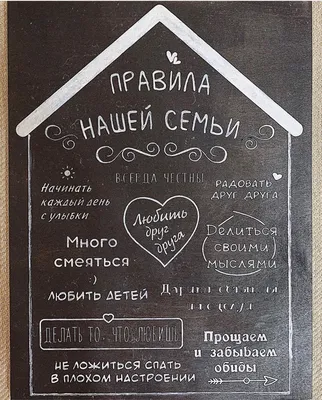 ПРАВИЛА
НАШЕЙ СЕМЬИ
ВСЕГДА ЧЕСТНЫ
Начинать
каждый день
с улыбки
РАДОВАТЬ
ДРУГ ДРУГА
Любить
друг
друга
Делиться
своими
мыслями
Много
смеяться
:)
ЛЮБИТЬ ДЕТЕЙ
ДЕЛАТЬ ТО, ЧТО ЛЮБИШЬ
Прощаем
и забываем
обиды
НЕ ЛОЖИТЬСЯ СПАТЬ
В ПЛОХОМ НАСТРОЕНИИ